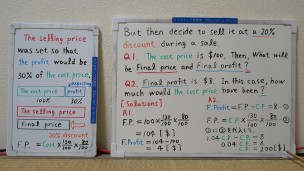 The selling price
was set so that
the profit would be
30% of the cost price.
The cost price
profit
100%
30%
The selling price
Final price
20% discount
F.P. = Cost × 130/100 × 80/100
But then decide to sell it at a 20%
discount during a sale.
Q1. The cost price is $100. Then, What will
be Final price and Final profit?
Q2. Final profit is $8. In this case, how
much would the cost price have been?
[Solutions]
A1.
F.P. = 100 × 130/100 × 80/100
= 104 [$]
F.Profit = 104 - 100
= 4 [$]
A2.
F.Profit = F.P. - C.P. = 8 ①
F.P. = C.P. × 130/100 × 80/100 ②
1.04 C.P. - C.P. = 8
0.04 C.P. = 8
C.P. = 200 [$]